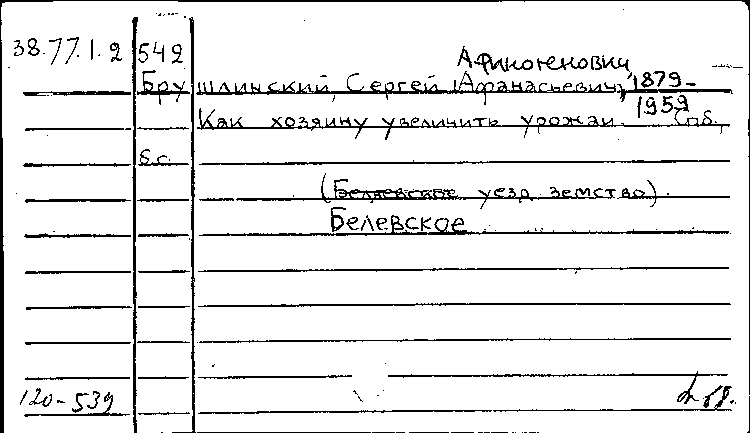 Афиногенович,
38.77.1.2 542
Брушлинский, Сергей (Афанасьевич), 1879-
1959
Как хозяину увеличить урожаи. Спб.,
б.г.
(Белевское уезд. земство).
Белевское
120-539